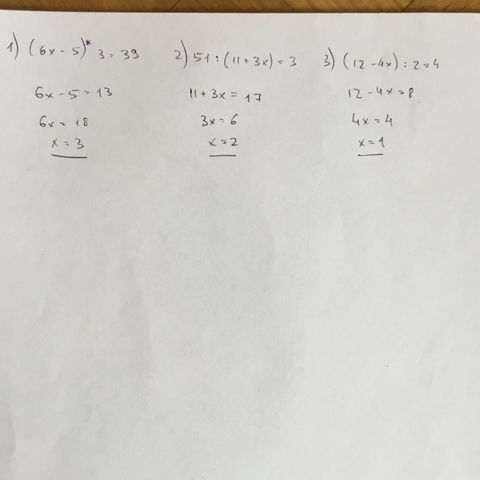 1) (6x - 5)* 3 = 39
6x - 5 = 13
6x = 18
x = 3
2) 51 : (11 + 3x) = 3
11 + 3x = 17
3x = 6
x = 2
3) (12 - 4x) : 2 = 4
12 - 4x = 8
4x = 4
x = 1